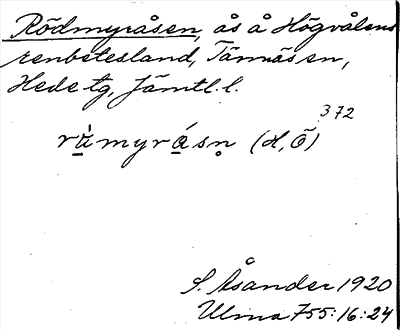 Rödmyråsen, ås å Högvålens
renbetesland, Tännäs sn,
Hede tg, Jämtl. l.
372
rὰmyrάsn̥ (H, Ö)
S. Åsander 1920
Ulma 755:16:24